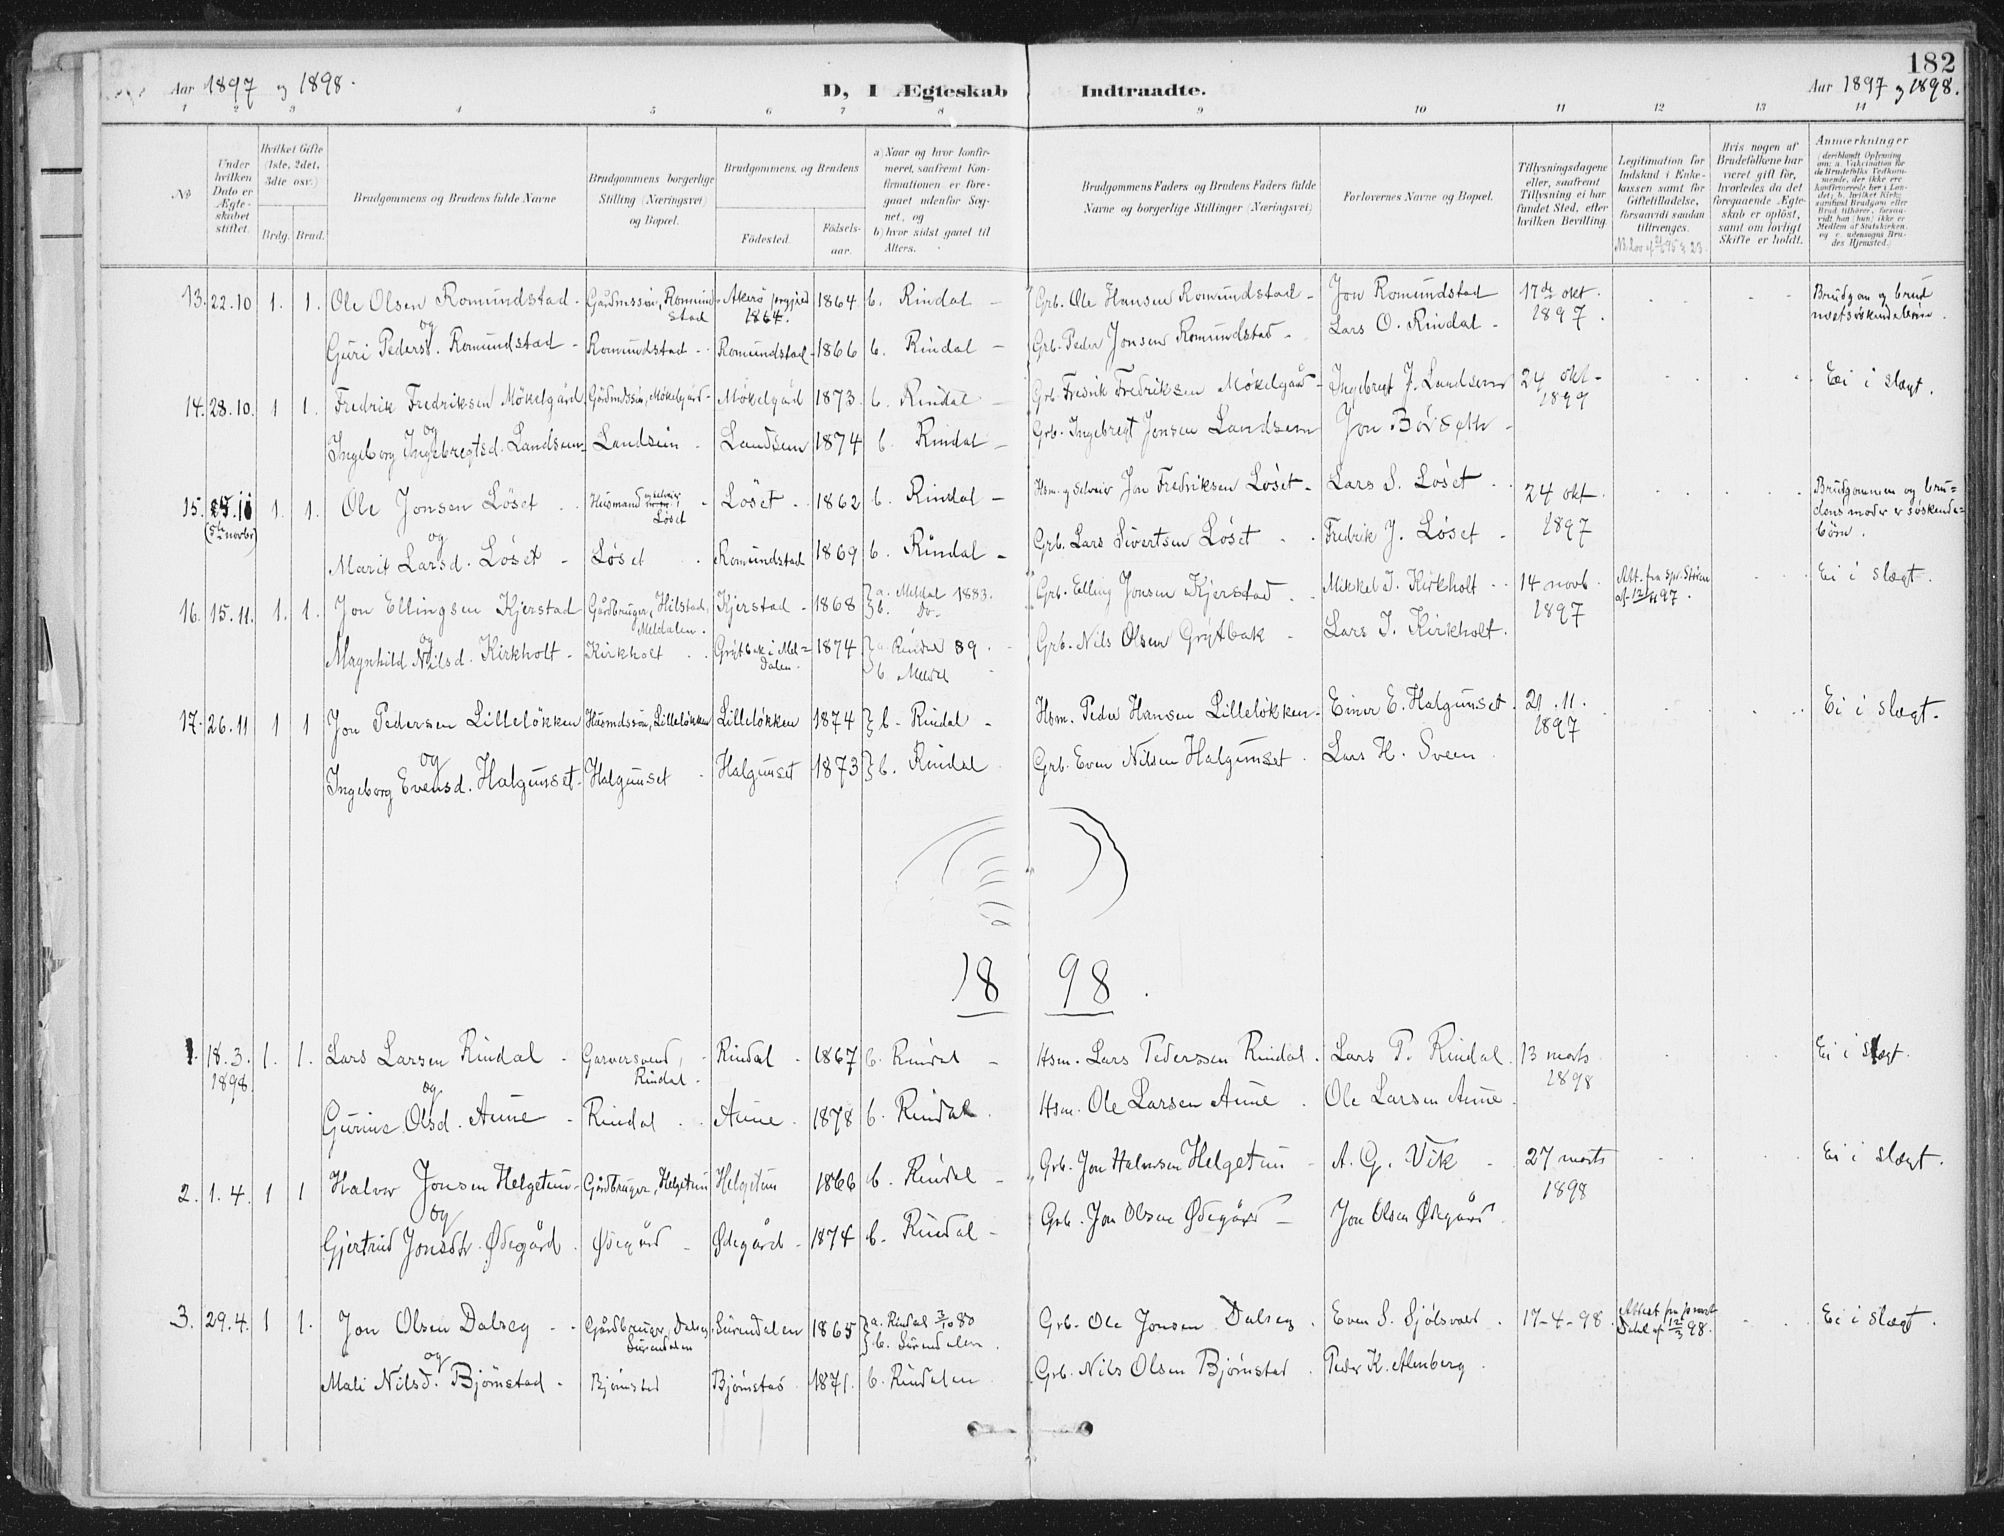 182
Aar 1897 og 1898.
D, I Ægteskab Indtraadte.
Aar 1897 og 1898.
1 2 3 4 5 6 7 8 9 10 11 12 13 14
No
Under hvilken Dato er Ægteskabet stiftet.
Hvilket Gifte (1ste, 2det, 3die osv.)
Brdg. Brud.
Brudgommens og Brudens fulde Navne
Brudgommens borgerlige Stilling (Næringsvei) og Bopæl.
Brudgommens og Brudens
Fødested. Fødsels-aar.
a) Naar og hvor konfirmeret, saafremt Konfirmationen er foregaaet udenfor Sognet, og
b) hvor sidst gaaet til Alters.
Brudgommens Faders og Brudens Faders fulde Navne og borgerlige Stillinger (Næringsvei)
Forlovernes Navne og Bopæl.
Tillysningsdagene eller, saafremt Tillysning ei har fundet Sted, efter hvilken Bevilling
Legitimation for Indskud i Enkekassen samt for Giftetilladelse, forsaavidt saadan tiltrænges.
Hvis nogen af Brudefolkene har været gift før, hvorledes da det foregaaende Ægteskab er opløst, samt om lovligt Skifte er holdt.
Anmærkninger
(deriblandt Oplysning om: a. Vaccination for de Brudefolks Vedkommende, der ikke ere konfirmerede her i Landet; b. hvilket Kirkesamfund Brudgom eller Brud tilhører, forsaavidt han (hun) ikke er Medlem af Statskirken, og c. udensogns Brudes Hjemsted.)
13. 22.10 1. 1. Ole Olsen Romundstad - Gårdmssøn, Romundstad Akerø prgjeld 1864. 1864 b. Rindal - Grb. Ole Hansen Romundstad - Jon Romundstad 17de okt. 1897. Brudgom og brud
og
Guri Pedersd. Romundstad - Romundstad - Romundstad - 1866 b. Rindal - Grb. Peder Jonsen Romundstad - Lars O. Rindal -
14. 28.10. 1 1. Fredrik Fredriksen Møkelgård Gårdmdssøn, Møkelgård - Møkelgård 1873. b. Rindal - Grb. Fredrik Fredriksen Møkelgård - Ingebregt J. Landsem 24 okt - 1897 Ei i slægt.
og
Ingeborg Ingebregtsd. Landsem - Landsem - Landsem 1874 b. Rindal - Grb. Ingebregt Jonsen Landsem Jon Børseth -
15. (5te novbr) 1. 1. Ole Jonsen Løset Husmand Løset - Løset - 1862 b. Rindal - Hsm. og Selveier Jon Fredriksen Løset - Lars S. Løset 24 okt. 1897 Brudgommen og brudens moder er søskendebørn.
og
Marit Larsd. Løset - Løset Romundstad 1869 b. Rindal - Grb. Lars Sivertsen Løset - Fredrik J. Løset -
16. 15.11. 1. 1. Jon Ellingsen Kjerstad Gårdbruger, Hilstad, Meldalen. Kjerstad - 1868 a. Meldal 1883. b. Do. Grb. Elling Jonsen Kjerstad. Mikkel J. Kirkholt - 14 novb. 1897 Att. fra spr. Støren af 12/11 97. Ei i slægt.
og
Magnhild Nilsd. Kirkholt - Kirkholt Grytbak i Meldalen. 1874 a. Rindal 89. b Meldal Grb. Nils Olsen Grytbak - Lars J. Kirkholt.
17. 26.11 1 1 Jon Pedersen Lilleløkken Husmdssøn, Lilleløkken Lilleløkken 1874 b. Rindal - Hsm. Peder Hansen Lilleløkken - Einer E. Halgunset. 21.11. 1897 Ei i slægt.
og
Ingeborg Evensd. Halgunset - Halgunset - Halgunset 1873 b. Rindal Grb. Even Nilsen Halgunset. Lars H. Sveen
1898.
1. 18.3. 1898. 1. 1. Lars Larsen Rindal - Garversvend, Rindal. Rindal - 1867 b. Rindal - Hsm. Lars Pedersen Rindal. Lars P. Rindal. 13 marts 1898 Ei i slægt.
og
Gurine Olsd. Aune - Rindal Aune. 1878 b. Rindal. Hsm. Ole Larsen Aune. Ole Larsen Aune.
2. 1.4. 1 1 Halvor Jonsen Helgetun - Gårdbruger, Helgetun Helgetun 1866 b. Rindal - Grb. Jon Halvorsen Helgetun - A. G. Vik - 27 marts 1898 Ei i slægt.
og
Gjertrud Jonsdtr. Ødegård. Ødegård - Ødegård - 1874 b. Rindal - Grb. Jon Olsen Ødegård - Jon Olsen Ødegård.
3. 29.4. 1 1. Jon Olsen Dalseg Gårdbruger, Dalseg, Surendalen Surendalen 1865 a. Rindal 3/10 80 b. Surendalen. Grb. Ole Jonsen Dalseg. Even S. Sjølsvold. 17-4-98. Attest fra Ei i slægt.
og
Mali Nilsd. Bjørnstad - Bjørnstad Bjørnstad. 1871. b. Rindalen Grb. Nils Olsen Bjørnstad. Peder K. Almberg.